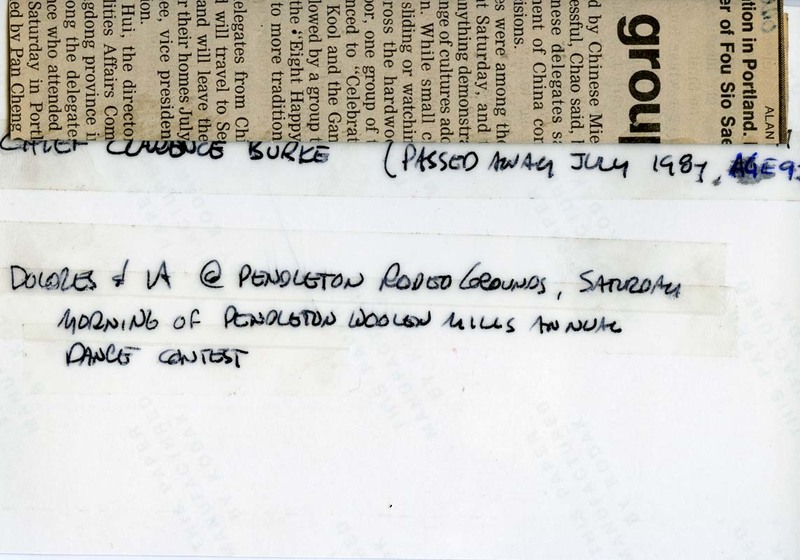 ALAN
tion in Portland.
er of Fou Sio Sae
group
d by Chinese Mie
essful, Chao said,
nese delegates sa
ment of China cor
isions.
es were among th
t Saturday, and
nything demonstra
nge of cultures ado
n. While small c
sliding or watchin
ross the hardwo
or, one group of t
nced to "Celebrat
Kool and the Gan
lowed by a group
the "Eight Happy
to more tradition
elegates from Chi
d will travel to Se
and will leave the
r their homes July
ee, vice presiden
ion.
Hui, the director
lities Affairs Com
gdong province i
ong the delegate
nce who attended
Saturday in Port
ed by Pan Cheng
CHIEF CLARENCE BURKE (PASSED AWAY JULY 1987, AGE 9
DOLORES & VA @ PENDLETON RODEO GROUNDS, SATURDAY
MORNING OF PENDLETON WOOLEN MILLS ANNUAL
DANCE CONTEST
THIS PAPER
MANUFACTURED
BY KODAK